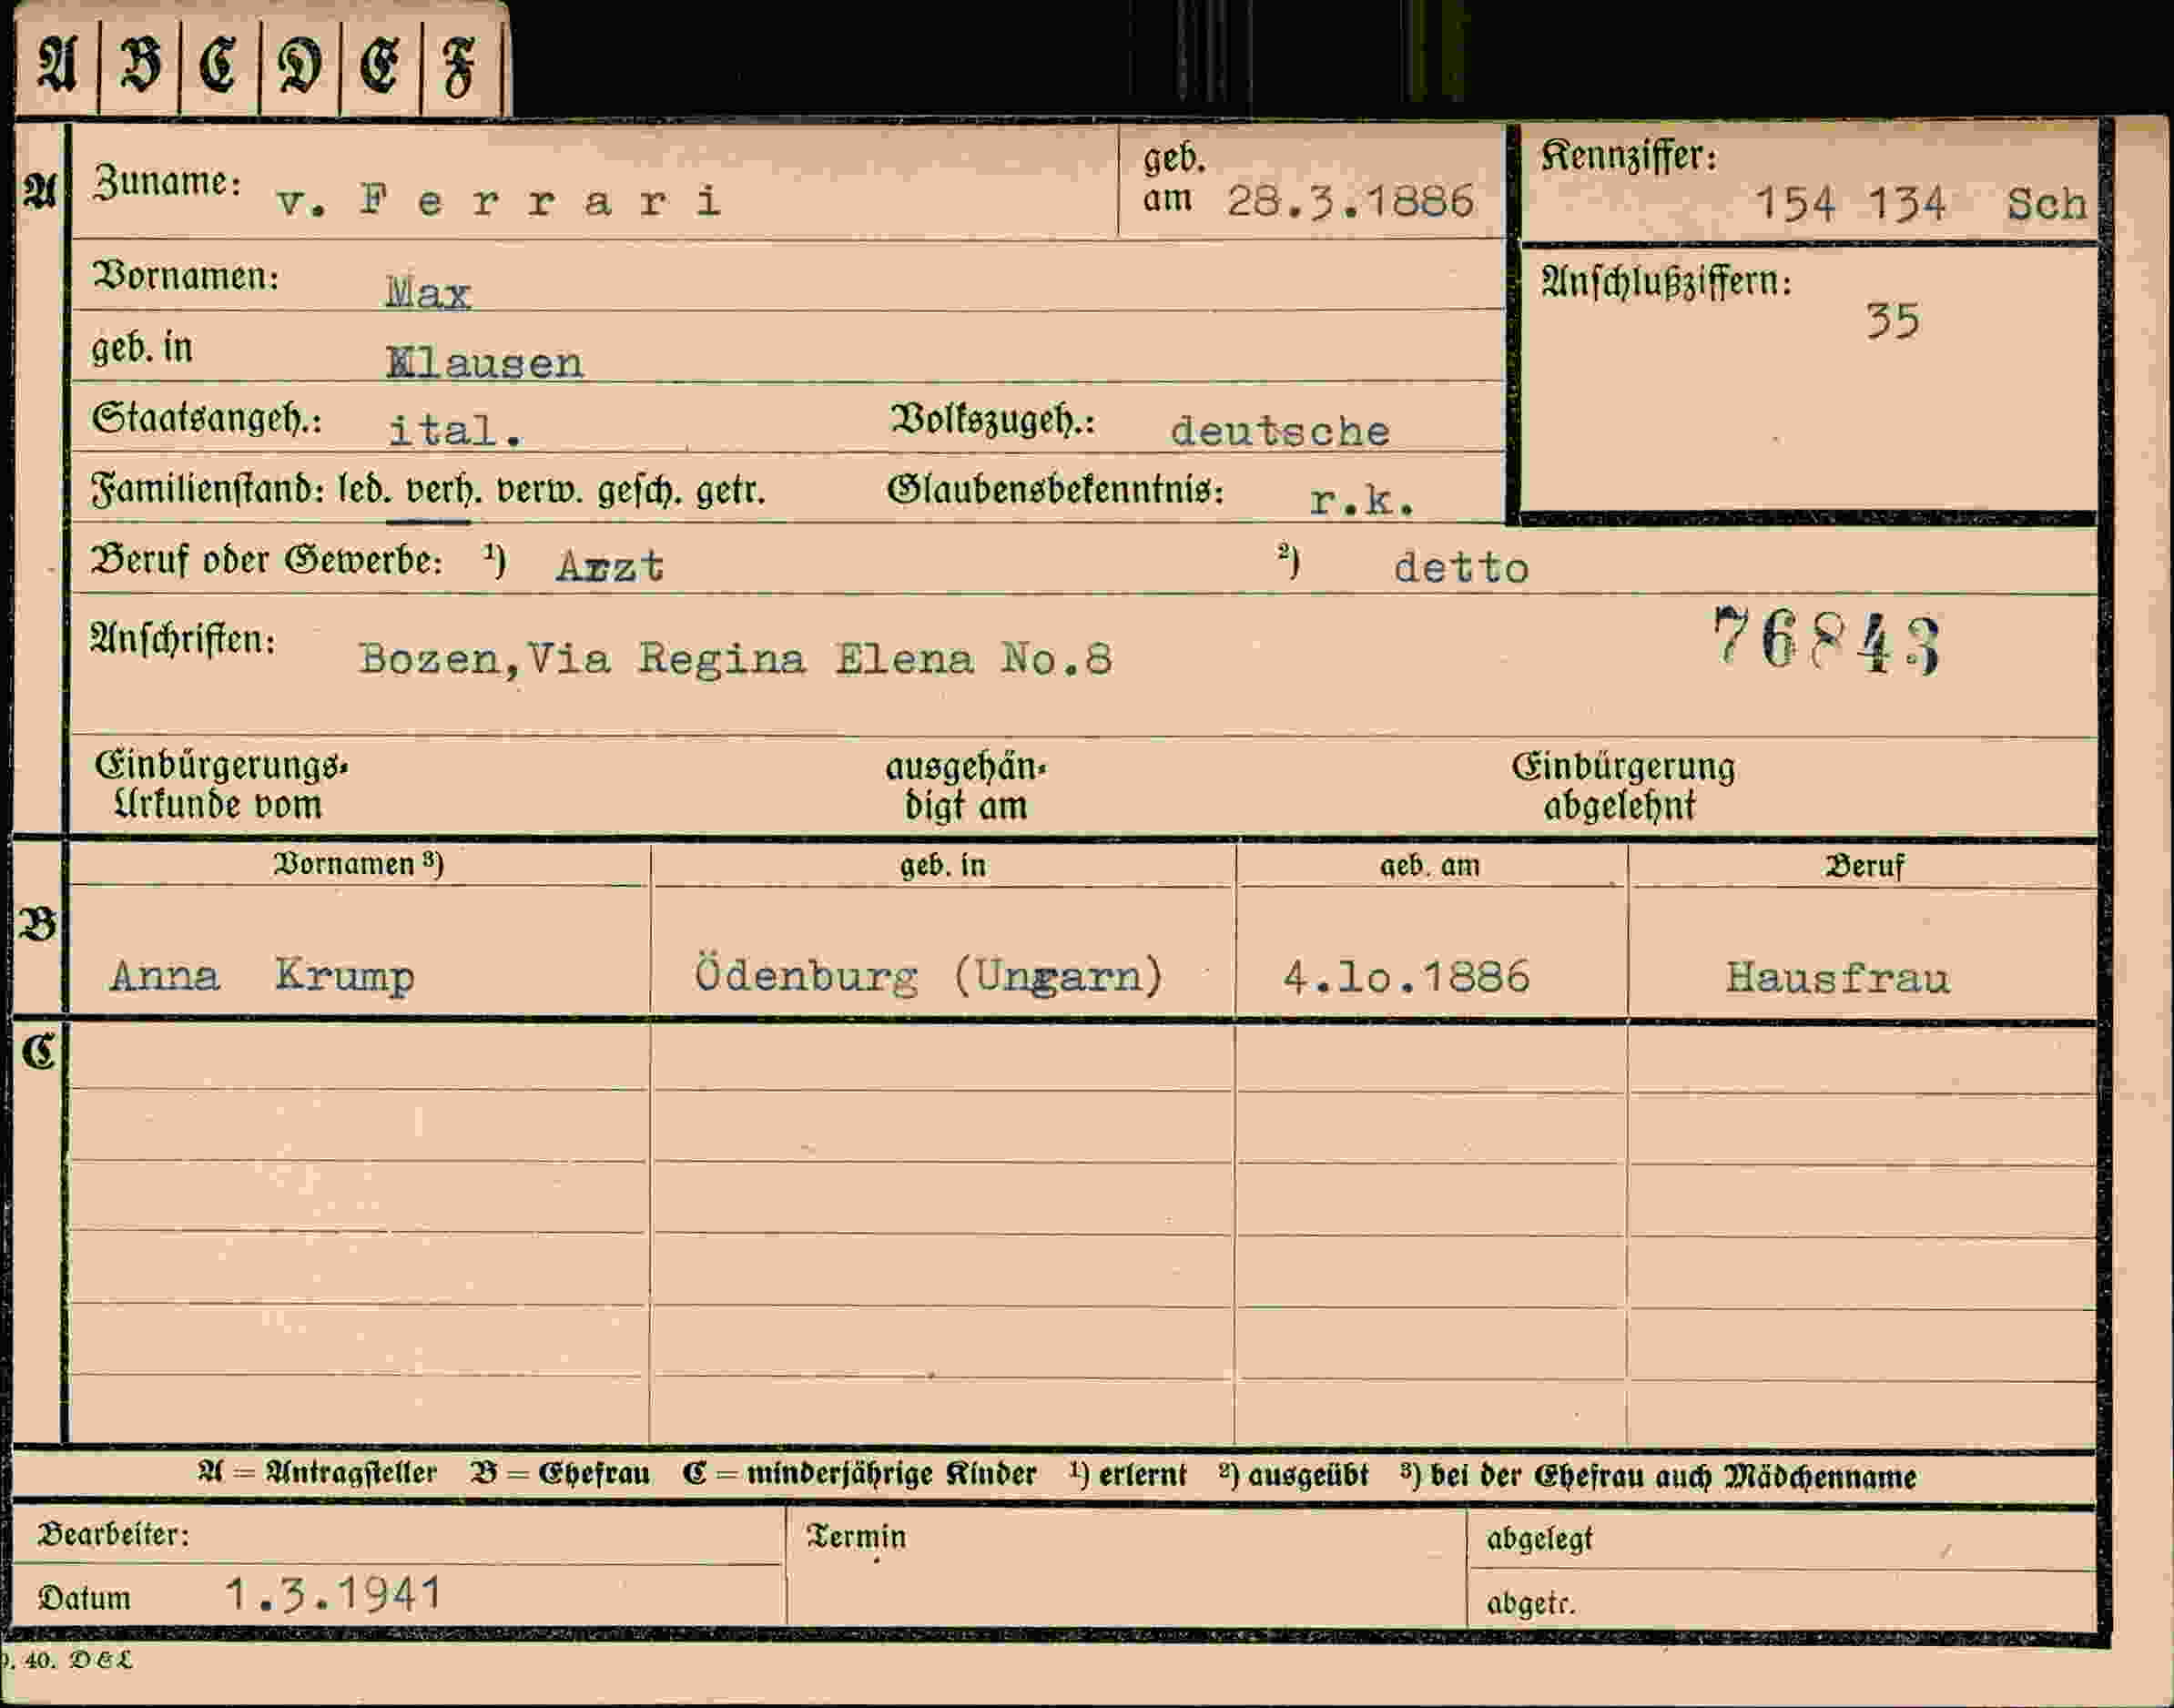 A B C D E F
A Zuname: v. F e r r a r i geb. am 28.3.1886 Kennziffer: 154 134 Sch
Vornamen: Max Anschlußziffern: 35
geb. in Klausen
Staatsangeh.: ital. Volkszugeh.: deutsche
Familienstand: led. verh. verw. gesch. getr. Glaubensbekenntnis: r.k.
Beruf oder Gewerbe: ¹) Arzt ²) detto
Anschriften: Bozen,Via Regina Elena No.8 76843
Einbürgerungs- ausgehän- Einbürgerung
Urkunde vom digt am abgelehnt
Vornamen ³) geb. in geb. am Beruf
B
Anna Krump Ödenburg (Ungarn) 4.lo.1886 Hausfrau
C
A = Antragsteller B = Ehefrau C = minderjährige Kinder ¹) erlernt ²) ausgeübt ³) bei der Ehefrau auch Mädchenname
Bearbeiter: Termin abgelegt
Datum 1.3.1941 abgetr.
. 40. DEL